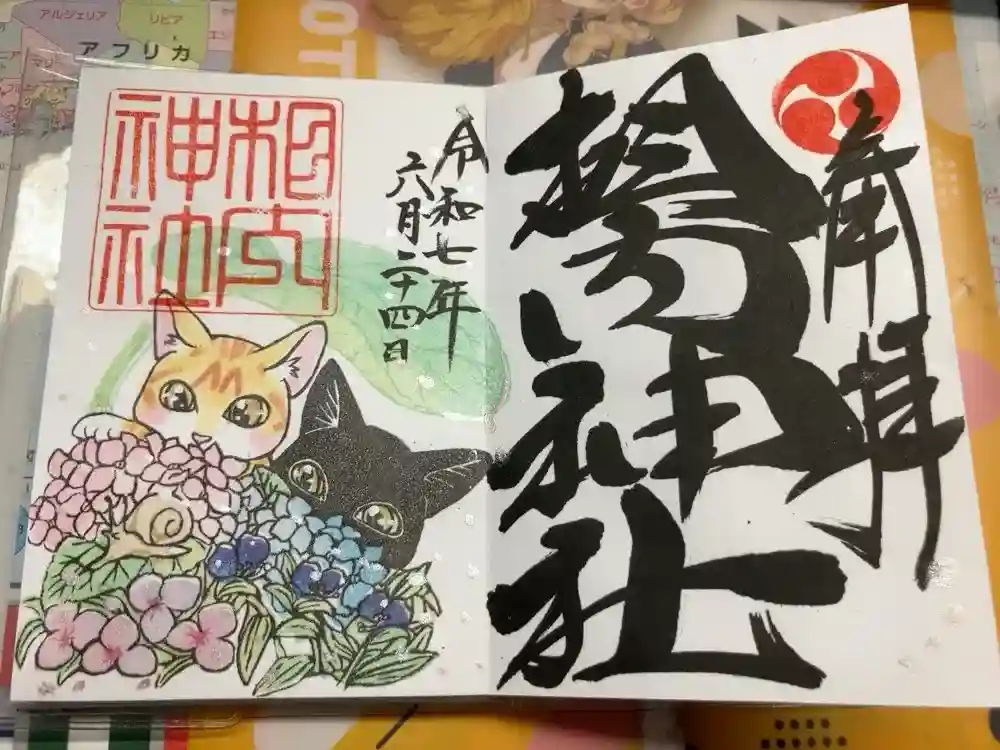 奉拝
相内神社
令和七年
六月二十四日
相内
神社
アルジェリア
リビア
アフリカ
マリ
OT